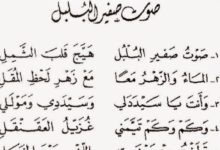 صوت صفير البلبل
١- صوت صفير البلبل هيج قلب الثمل
٢- الماء والزهر معا مع زهر لحظ المقل
٣- وأنت يا سيددلي وسيددي ومولي
٤- وكم وكم تيمني غزيل العقنقل